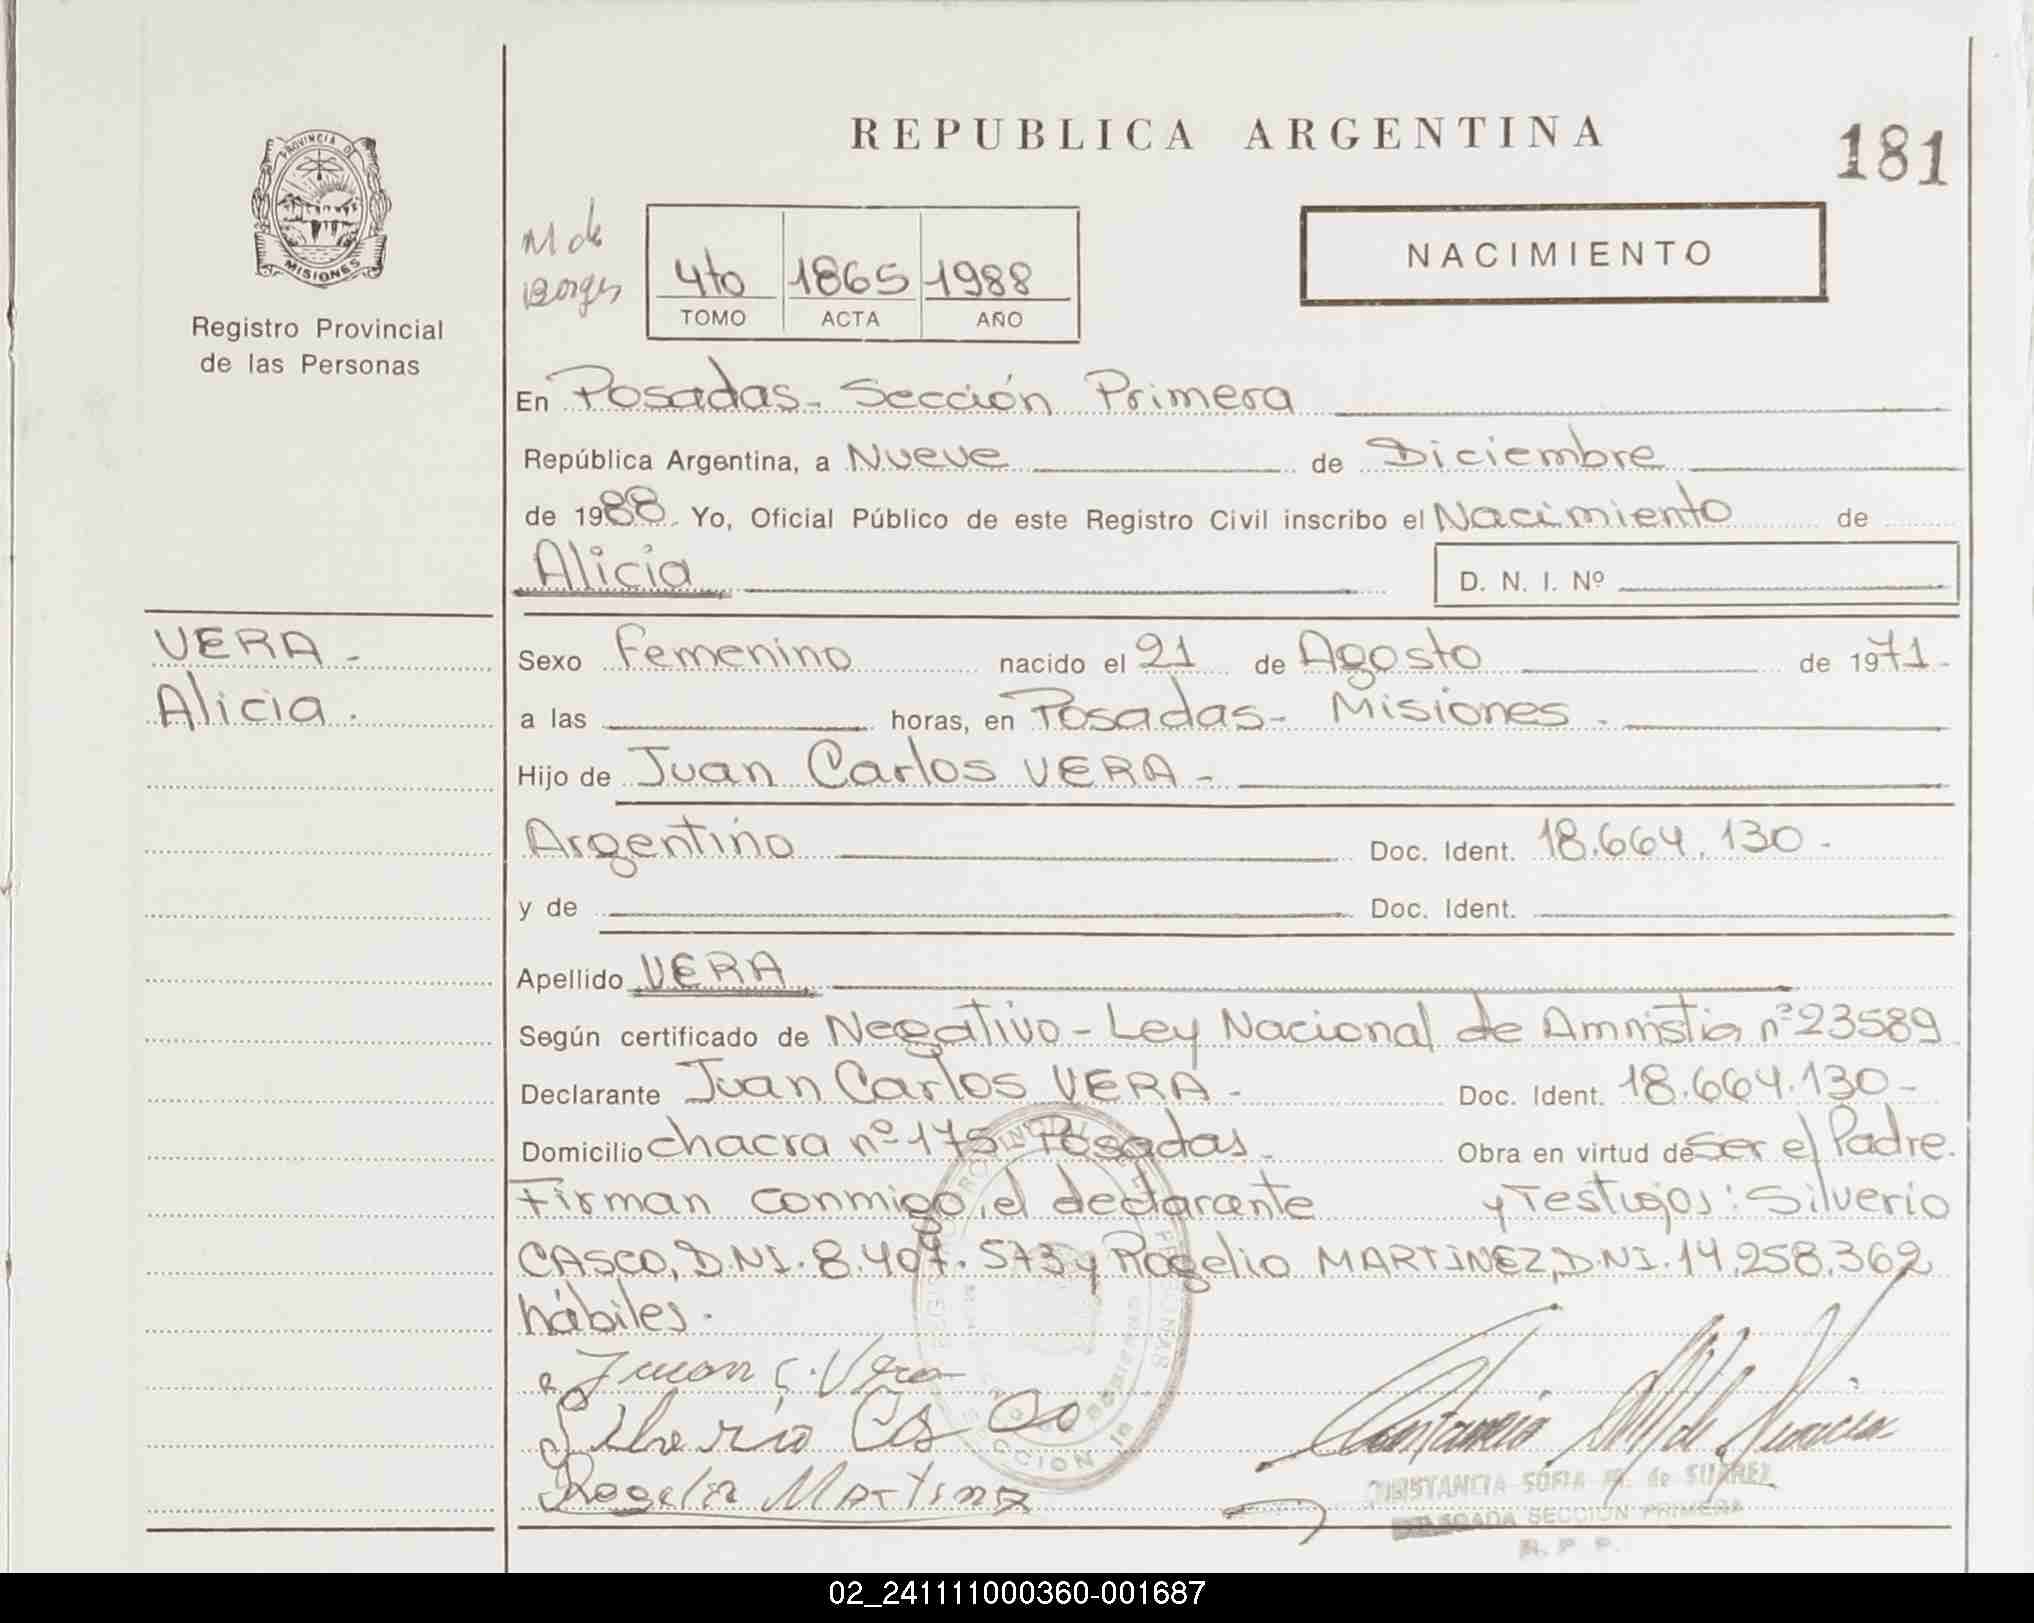 REPUBLICA ARGENTINA
181
PROVINCIA DE
MISIONES
Registro Provincial
de las Personas
M de
Borges
4to 1865 1988
TOMO ACTA AÑO
NACIMIENTO
En Posadas- Sección Primera
República Argentina, a Nueve de Diciembre
de 1988. Yo, Oficial Público de este Registro Civil inscribo el Nacimiento de
Alicia D. N. I. Nº
VERA -
Alicia.
Sexo Femenino nacido el 21 de Agosto de 1971-
a las horas, en Posadas- Misiones.
Hijo de Juan Carlos VERA-
Argentino Doc. Ident. 18.664.130-
y de Doc. Ident.
Apellido VERA
Según certificado de Negativo- Ley Nacional de Amnistia nº23589
Declarante Juan Carlos VERA- Doc. Ident. 18.664.130-
Domicilio chacra nº 175 Posadas. Obra en virtud de Ser el Padre.
Firman conmigo, el declarante y Testigos: Silverio
CASCO, D.N.I. 8.407.573 y Rogelio MARTINEZ, D.N.I. 14.258.362
hábiles.
Juan C. Vera
Silverio Casco
Rogelio Martinez
CONSTANCIA SOFIA M. de SUAREZ
SECCION PRIMERA
R. P. P.
02_241111000360-001687